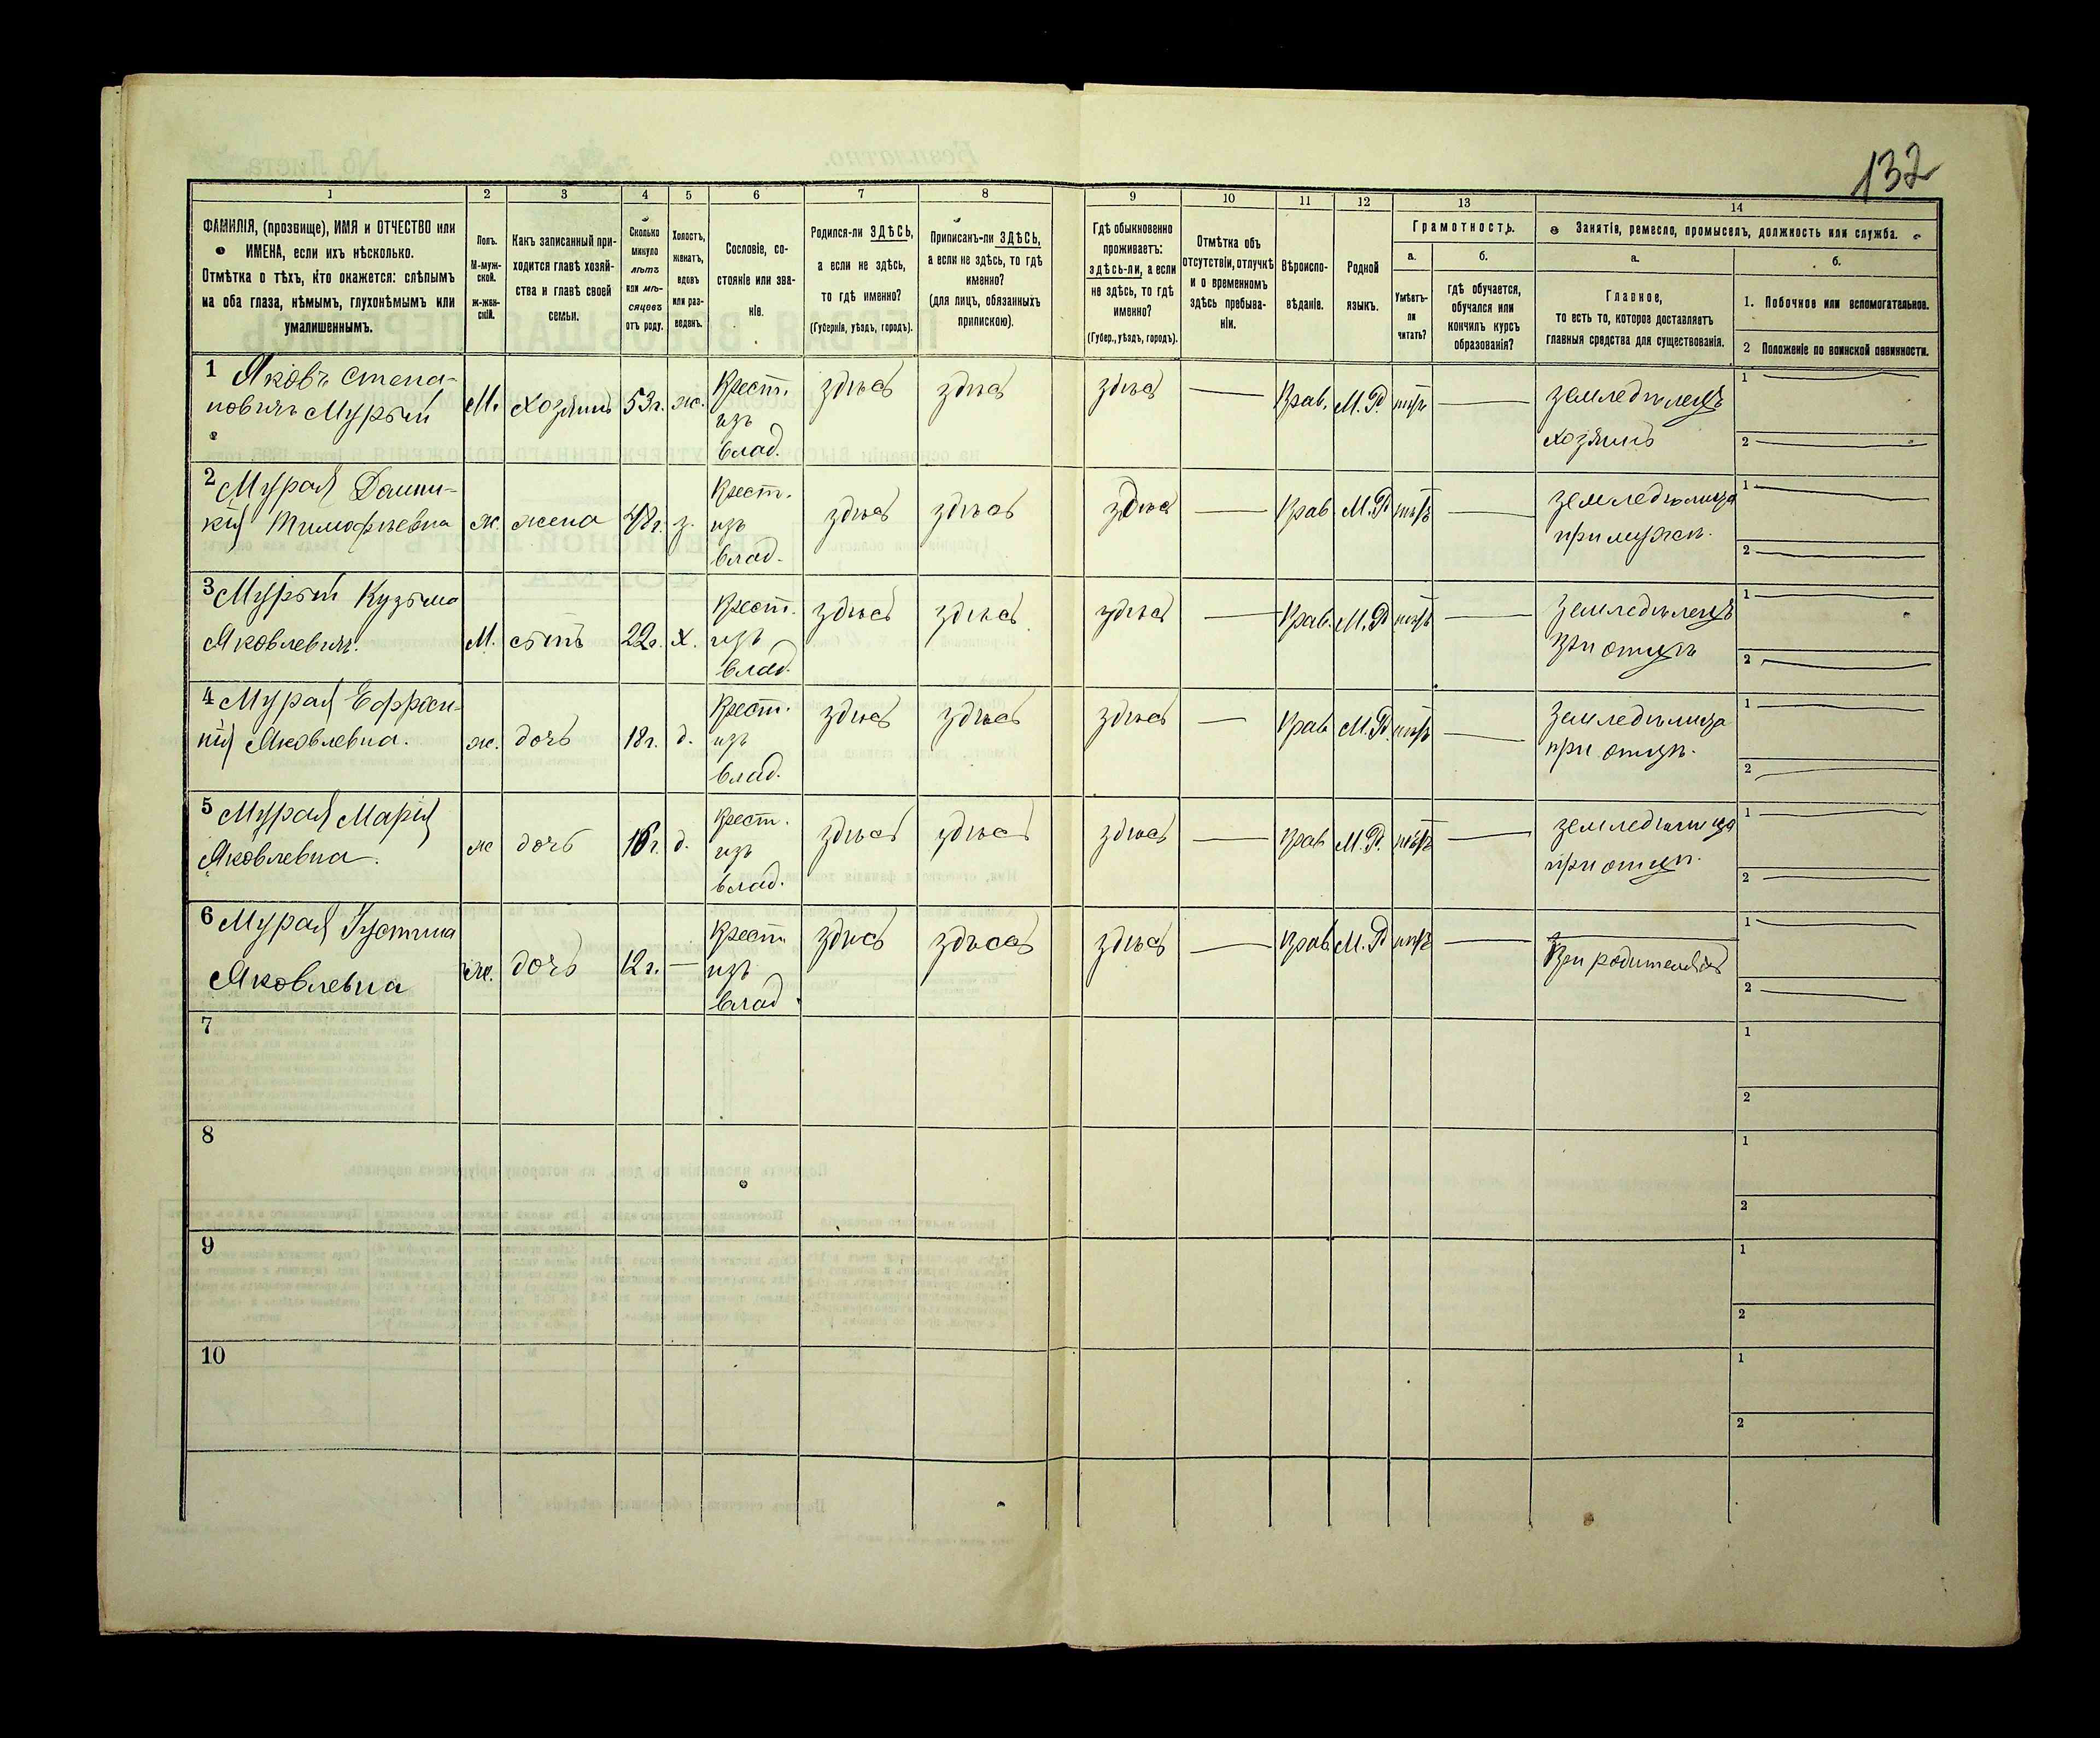 132
1
2
3
4
5
6
7
8
9
10
11
12
13
14
ФАМИЛІЯ, (прозвище), ИМЯ и ОТЧЕСТВО или
ИМЕНА, если ихъ нѣсколько.
Отмѣтка о тѣхъ, кто окажется: слѣпымъ
на оба глаза, нѣмымъ, глухонѣмымъ или
умалишеннымъ.
Полъ.
М-муж-
ской.
Ж-жен-
скій.
Какъ записанный при-
ходится главѣ хозяй-
ства и главѣ своей
семьи.
Сколько
минуло
лѣтъ
или мѣ-
сяцевъ
отъ роду.
Холостъ,
женатъ,
вдовъ
или раз-
веденъ.
Сословіе, со-
стояніе или зва-
ніе.
Родился-ли ЗДѢСЬ,
а если не здѣсь,
то гдѣ именно?
(Губернія, уѣздъ, городъ).
Приписанъ-ли ЗДѢСЬ,
а если не здѣсь, то гдѣ
именно?
(для лицъ, обязанныхъ
припискою).
Гдѣ обыкновенно
проживаетъ:
здѣсь-ли, а если
не здѣсь, то гдѣ
именно?
(Губер., уѣздъ, городъ).
Отмѣтка объ
отсутствіи, отлучкѣ
и о временномъ
здѣсь пребыва-
ніи.
Вѣроиспо-
вѣданіе.
Родной
языкъ.
Грамотность.
а.
Умѣетъ-
ли
читать?
б.
гдѣ обучается,
обучался или
кончилъ курсъ
образованія?
Занятіе, ремесло, промыселъ, должность или служба.
а.
Главное,
то есть то, которое доставляетъ
главныя средства для существованія.
б.
1. Побочное или вспомогательное.
2 Положеніе по воинской повинности.
1 Яковъ Степа-
новичъ Мурый
М. хозяинъ 53г. ж. Крест. изъ влад. здѣсь здѣсь здѣсь — Прав. М.Р. нѣтъ — земледѣлецъ хозяинъ
1
2
2 Мурая Домни-
кія Тимофѣевна
ж. жена 48г. з. Крест. изъ влад. здѣсь здѣсь здѣсь — Прав. М.Р. нѣтъ — земледѣлица при мужѣ.
1
2
3 Мурый Кузьма
Яковлевичъ.
М. сынъ 22г. х. Крест. изъ влад. здѣсь здѣсь здѣсь — Прав. М.Р. нѣтъ — земледѣлецъ при отцѣ
1
2
4 Мурая Ефроси-
нія Яковлевна.
ж. дочь 18г. д. Крест. изъ влад. здѣсь здѣсь здѣсь — Прав. М.Р. нѣтъ — земледѣлица при отцѣ.
1
2
5 Мурая Марія
Яковлевна.
ж дочь 16г. д. Крест. изъ влад. здѣсь здѣсь здѣсь — Прав М.Р. нѣтъ — земледѣлица при отцѣ.
1
2
6 Мурая Іустина
Яковлевна
ж. дочь 12г. — Крест. изъ влад. здѣсь здѣсь здѣсь — Прав М.Р нѣтъ — При родителяхъ
1
2
7
1
2
8
1
2
9
1
2
10
1
2